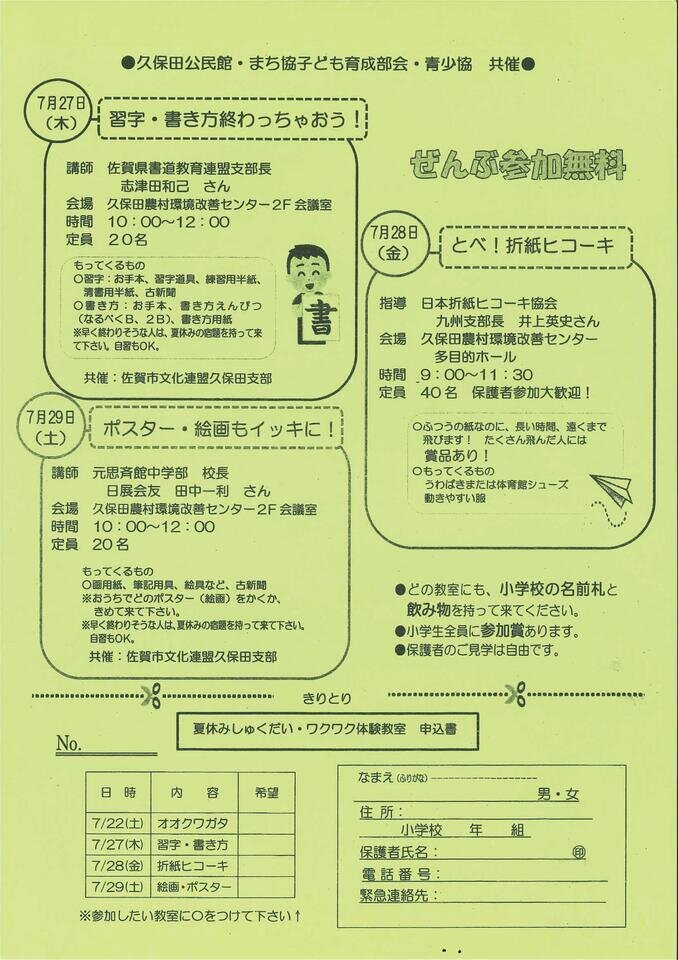 ●久保田公民館・まち協子ども育成部会・青少協　共催●
7月27日
（木）
習字・書き方終わっちゃおう！
講師　佐賀県書道教育連盟支部長
志津田和己　さん
会場　久保田農村環境改善センター２Ｆ会議室
時間　１０：００～１２：００
定員　２０名
もってくるもの
○習字：お手本、習字道具、練習用半紙、
清書用半紙、古新聞
○書き方：お手本、書き方えんぴつ
（なるべくＢ、２Ｂ）、書き方用紙
※早く終わりそうな人は、夏休みの宿題を持って来
て下さい。自習もOK。
書
共催：佐賀市文化連盟久保田支部
ぜんぶ参加無料
7月28日
（金）
とべ！折紙ヒコーキ
指導　日本折紙ヒコーキ協会
九州支部長　井上英史さん
会場　久保田農村環境改善センター
多目的ホール
時間　９：００～１１：３０
定員　４０名　保護者参加大歓迎！
○ふつうの紙なのに、長い時間、遠くまで
飛びます！　たくさん飛んだ人には
賞品あり！
○もってくるもの
うわばきまたは体育館シューズ
動きやすい服
7月29日
（土）
ポスター・絵画もイッキに！
講師　元思斉館中学部　校長
日展会友　田中一利　さん
会場　久保田農村環境改善センター２Ｆ会議室
時間　１０：００～１２：００
定員　２０名
もってくるもの
○画用紙、筆記用具、絵具など、古新聞
※おうちでどのポスター（絵画）をかくか、
きめて来て下さい。
※早く終わりそうな人は、夏休みの宿題を持って来て下さい。
自習もOK。
共催：佐賀市文化連盟久保田支部
●どの教室にも、小学校の名前札と
飲み物を持って来てください。
●小学生全員に参加賞あります。
●保護者のご見学は自由です。
きりとり
夏休みしゅくだい・ワクワク体験教室　申込書
No.
日　時　内　容　希望
7/22(土)　オオクワガタ
7/27(木)　習字・書き方
7/28(金)　折紙ヒコーキ
7/29(土)　絵画・ポスター
※参加したい教室に○をつけて下さい↑
なまえ（ふりがな）
男・女
住　所：
小学校　　年　　組
保護者氏名：　㊞
電　話　番　号：
緊急連絡先：